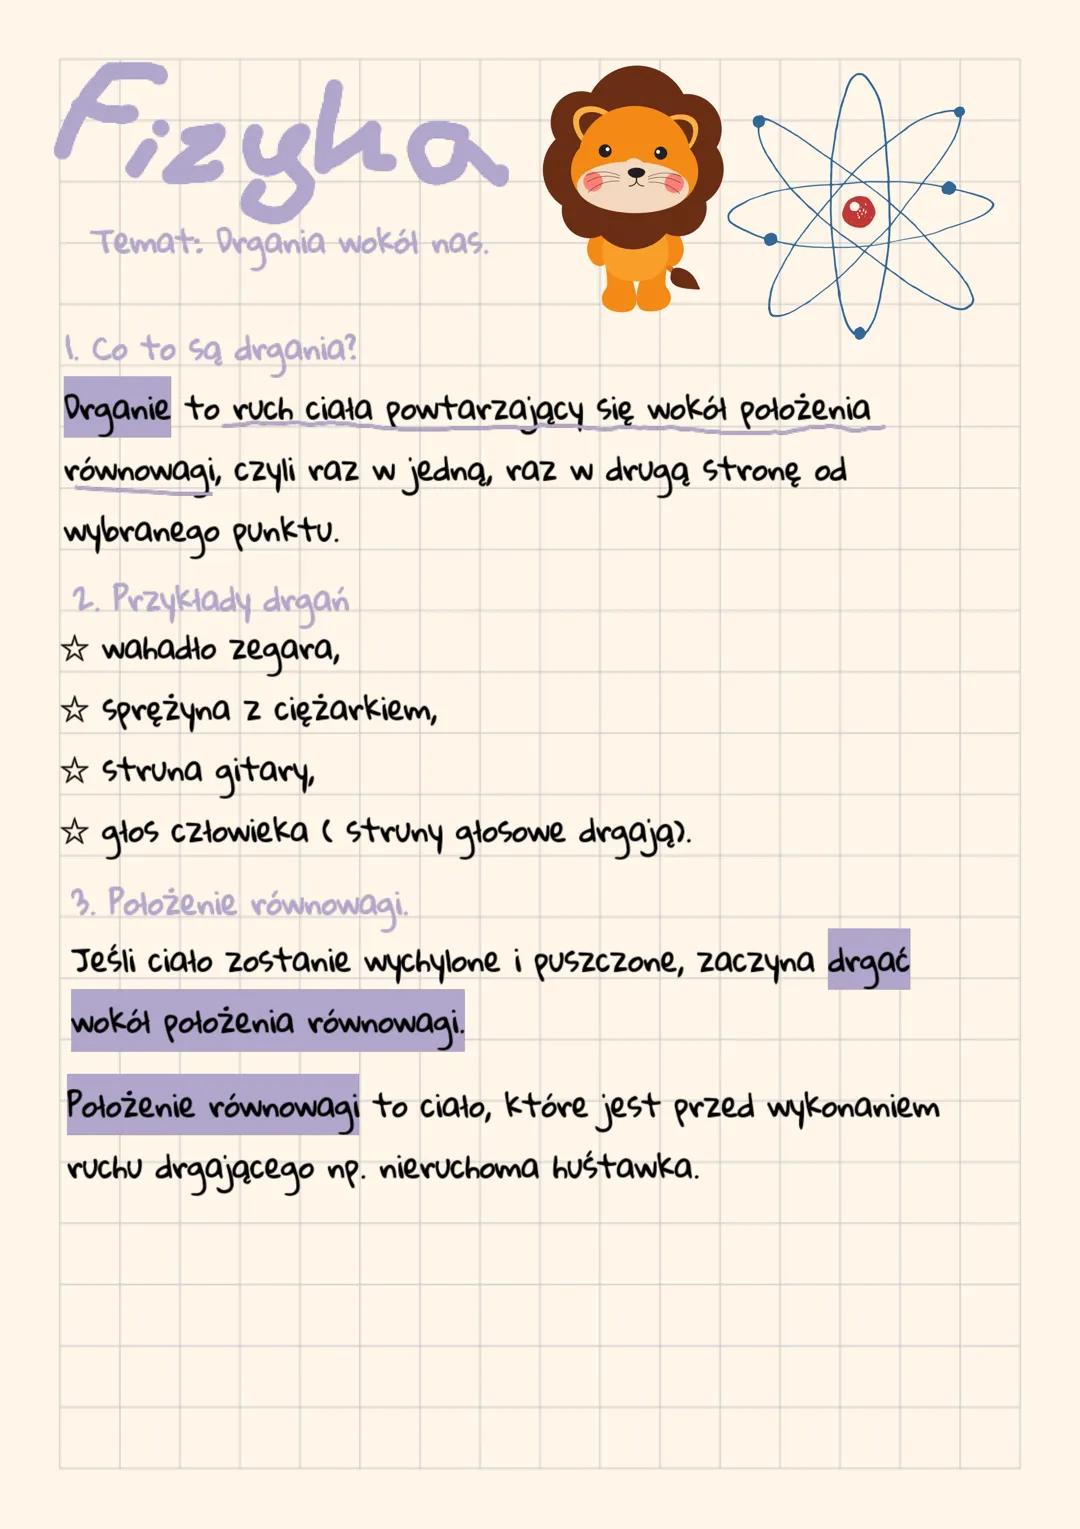 Fizyka
Temat: Drgania wokół nas.
1. Co to są drgania?
Drganie to ruch ciała powtarzający się wokół położenia
równowagi, czyli raz w jedną, raz w drugą stronę od
wybranego punktu.
2. Przykłady drgań
☆ wahadło zegara,
☆ sprężyna z ciężarkiem,
☆ struna gitary,
☆ głos człowieka ( struny głosowe drgają).
3. Położenie równowagi.
Jeśli ciało zostanie wychylone i puszczone, zaczyna drgać
wokół położenia równowagi.
Położenie równowagi to ciało, które jest przed wykonaniem
ruchu drgającego np. nieruchoma huśtawka.